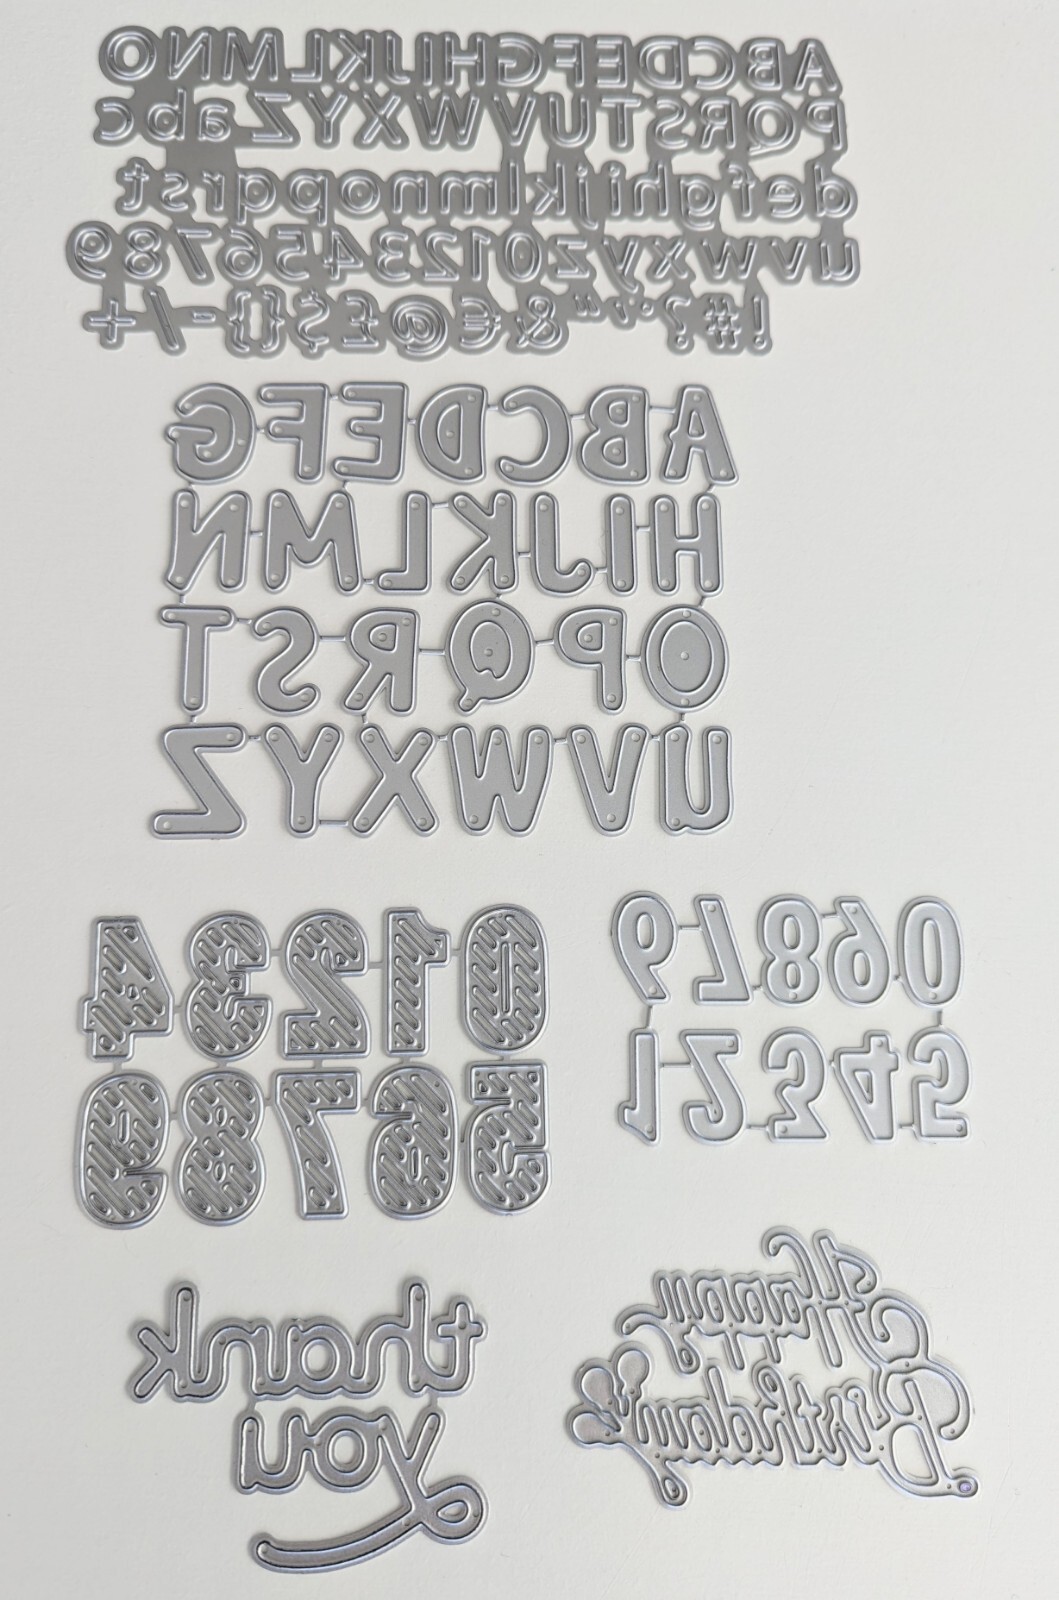 ABCDEFGHIJKLMNO
PQRSTUVWXYZ abc
defghijklmnopqrst
uvwxyz0123456789
!#?.'"&€@£${}-/+
ABCDEFG
HIJKLMN
OPQRST
UVWXYZ
01234
56789
06879
54321
thank
you
Happy
Birthday